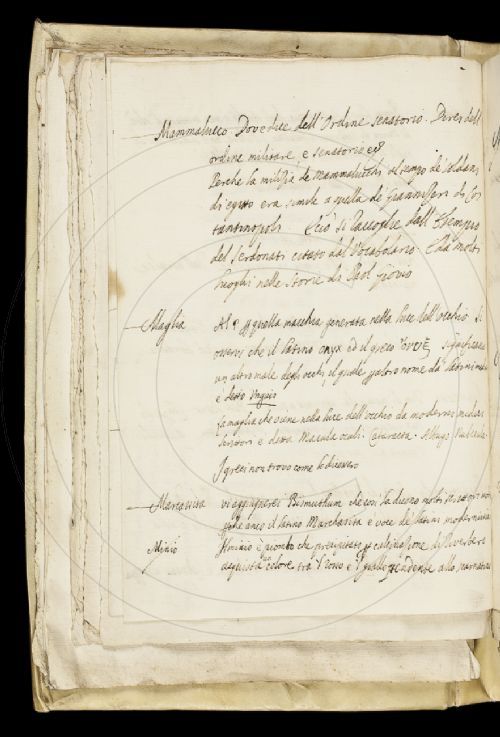 Mammalucco Dove dice dell'Ordine senatorio. Direi dell
ordine militare, e senatorio
Perche la milizia de Mammalucchi al tempo de Soldani
di egitto era simile a quella de Giannizeri di Cos
tantinopoli E ciò si raccoglie dall'Esempio
del Serdonati citato dal Vocabolario. Ed a molti
luoghi nelle Storie di Paol Giovio
Maglia Al § quella macchia generata nella luce dell'occhio Si
osservi che il latino onyx ed il greco significano
un altro male degli occhi il quale per altro nome da latini
è detto Unguis
la maglia che viene nella luce dell'occhio da moderni medici
scrittori è detta Macula oculi. Cataracta. Albugo Nubecula.
I greci non trovo come la dicessero
Marcassita vi aggiugnerei Bismuthum che così la dicono molti
anco il latino Marchasita è voce de latini moderni
Minio Il minio è piombo che precipitato calcinazione di riverbero
acquista colore tra l rosso e l giallo pendente allo